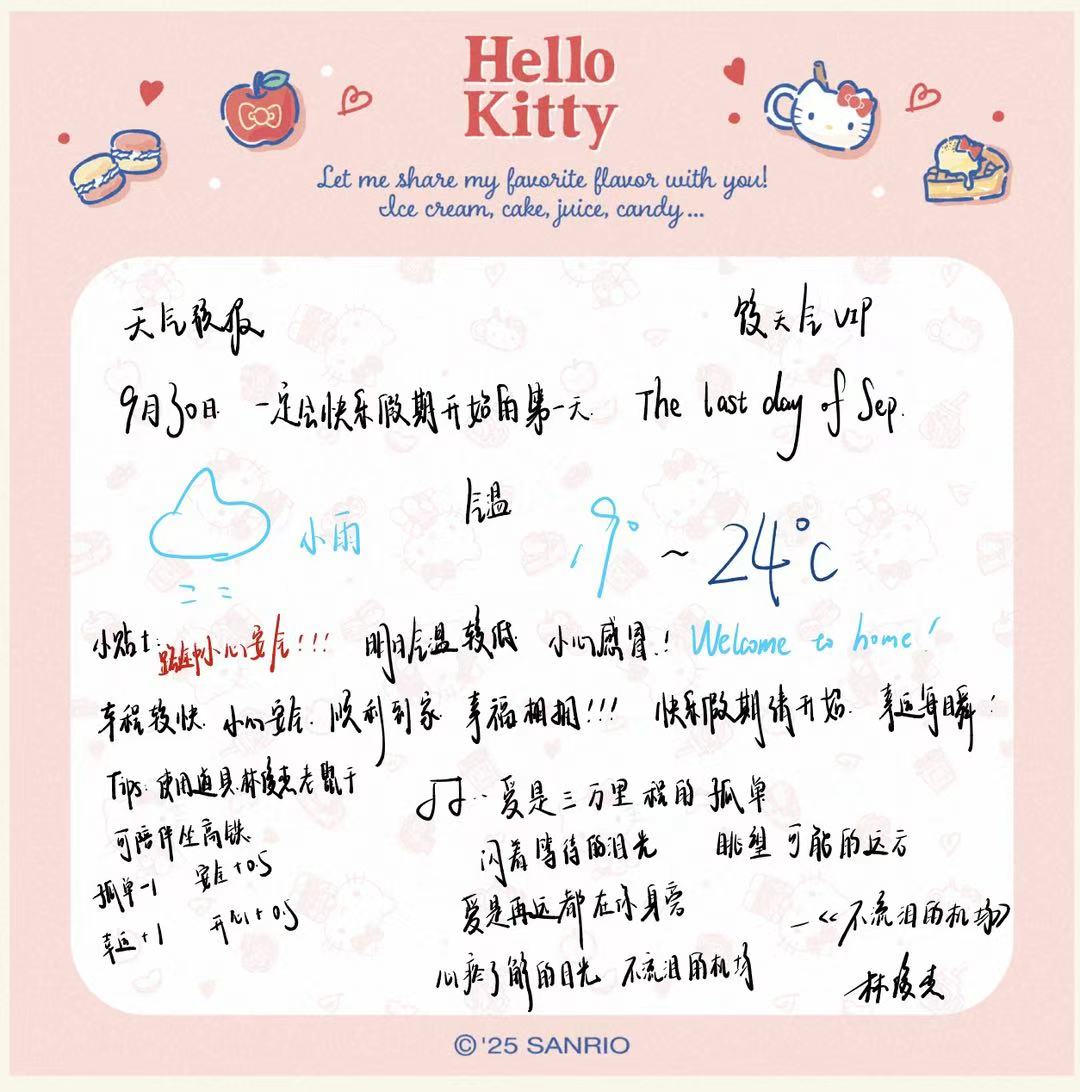 Hello
Kitty
Let me share my favorite flavor with you!
Ice cream, cake, juice, candy...
天气预报 饺天气VIP
9月30日 一定会快乐假期开始的第一天. The last day of Sep.
小雨 气温 19° ~ 24°C
小贴士: 路途中小心安全!!! 明日气温较低 小心感冒! Welcome to home!
车程较快. 小心安全. 顺利到家 幸福相拥!!! 快乐假期请开始. 幸运每瞬!
Tips: 使用道具林俊杰老鼠干
可陪伴坐高铁.
孤单-1 安全+0.5
幸运+1 开心+0.5
爱是三万里程的孤单
闪着等待的泪光 眺望可能的远方
爱是再远都在你身旁
心疼了解的目光 不流泪的机场
—《不流泪的机场》
林俊杰
©'25 SANRIO